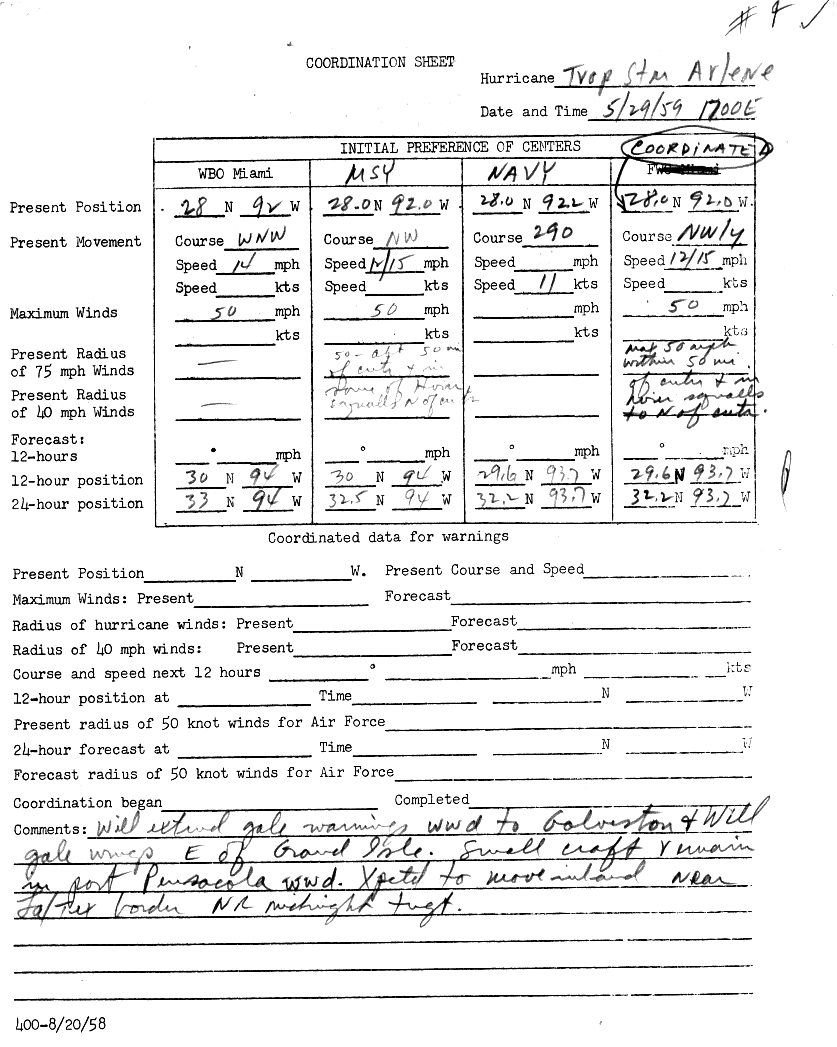 # 4 ✓
COORDINATION SHEET
Hurricane Trop Stm Arlene
Date and Time 5/29/59 1700E
INITIAL PREFERENCE OF CENTERS COORDINATED
WBO Miami MSY NAVY
Present Position 28 N 92 W 28.0 N 92.0 W 28.0 N 92.2 W 28.0 N 92.0 W
Present Movement Course WNW Course NW Course 290 Course NW'ly
Speed 14 mph Speed 12/15 mph Speed mph Speed 12/15 mph
Speed kts Speed kts Speed 11 kts Speed kts
Maximum Winds 50 mph 50 mph mph 50 mph
kts kts kts kts
Present Radius 50 - 50 mi max 50 mph
of 75 mph Winds — of cntr & in within 50 mi.
Present Radius of cntr & in
of 40 mph Winds — squalls N of cntr squalls
to N of cntr.
Forecast:
12-hours ° mph ° mph ° mph ° mph
12-hour position 30 N 94 W 30 N 94 W 29.6 N 93.7 W 29.6 N 93.7 W
24-hour position 33 N 94 W 32.5 N 94 W 32.2 N 93.7 W 32.2 N 93.7 W
Coordinated data for warnings
Present Position N W. Present Course and Speed
Maximum Winds: Present Forecast
Radius of hurricane winds: Present Forecast
Radius of 40 mph winds: Present Forecast
Course and speed next 12 hours ° mph kts
12-hour position at Time N W
Present radius of 50 knot winds for Air Force
24-hour forecast at Time N W
Forecast radius of 50 knot winds for Air Force
Coordination began Completed
Comments: Will extend gale warnings wwd to Galveston & Will
gale wrngs E of Grand Isle. Small craft remain
in port Pensacola wwd. Xpctd to move inland near
La/Tex border NR midnight tngt.
400-8/20/58